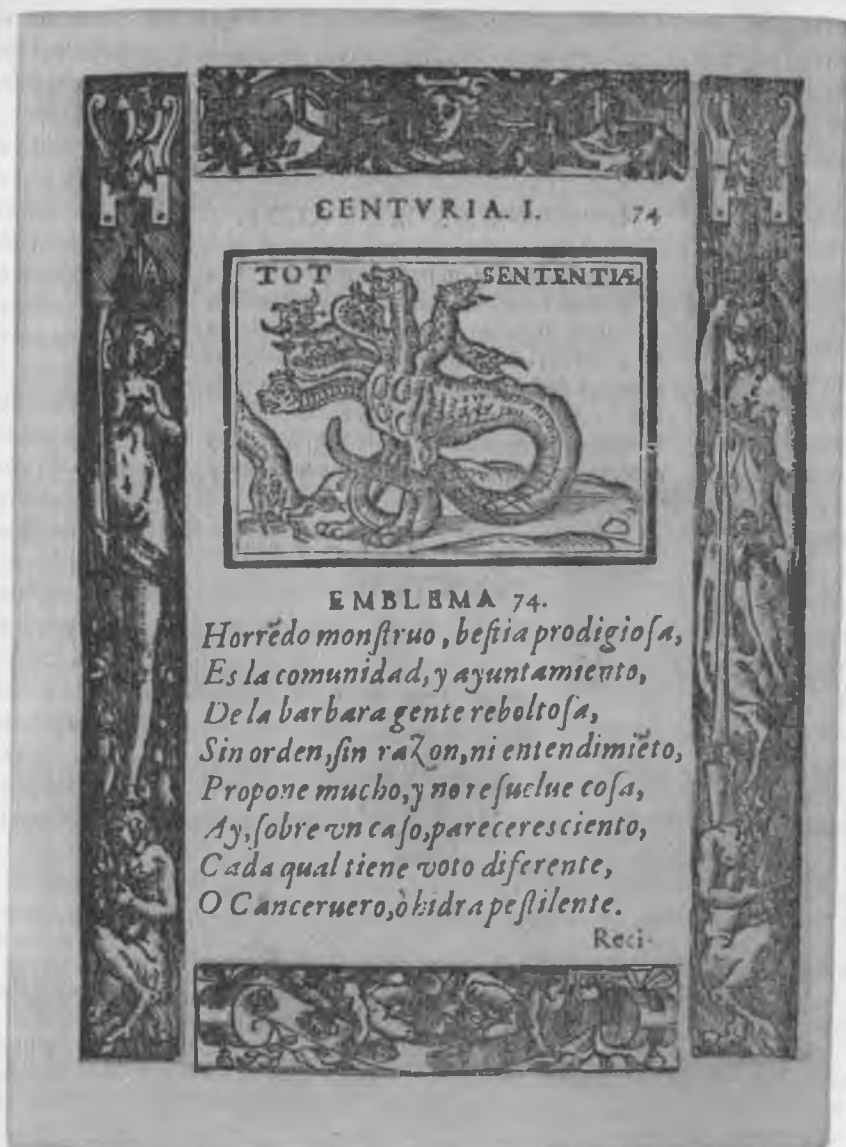 CENTVRIA. I. 74
TOT SENTENTIÆ
EMBLEMA 74.
Horrẽdo monſtruo, beſtia prodigioſa,
Es la comunidad, y ayuntamiento,
De la barbara gente reboltoſa,
Sin orden, ſin razon, ni entendimiẽto,
Propone mucho, y no reſuelue coſa,
Ay, ſobre vn caſo, pareceres ciento,
Cada qual tiene voto diferente,
O Canceruero, ò hidra peſtilente.
Reci-